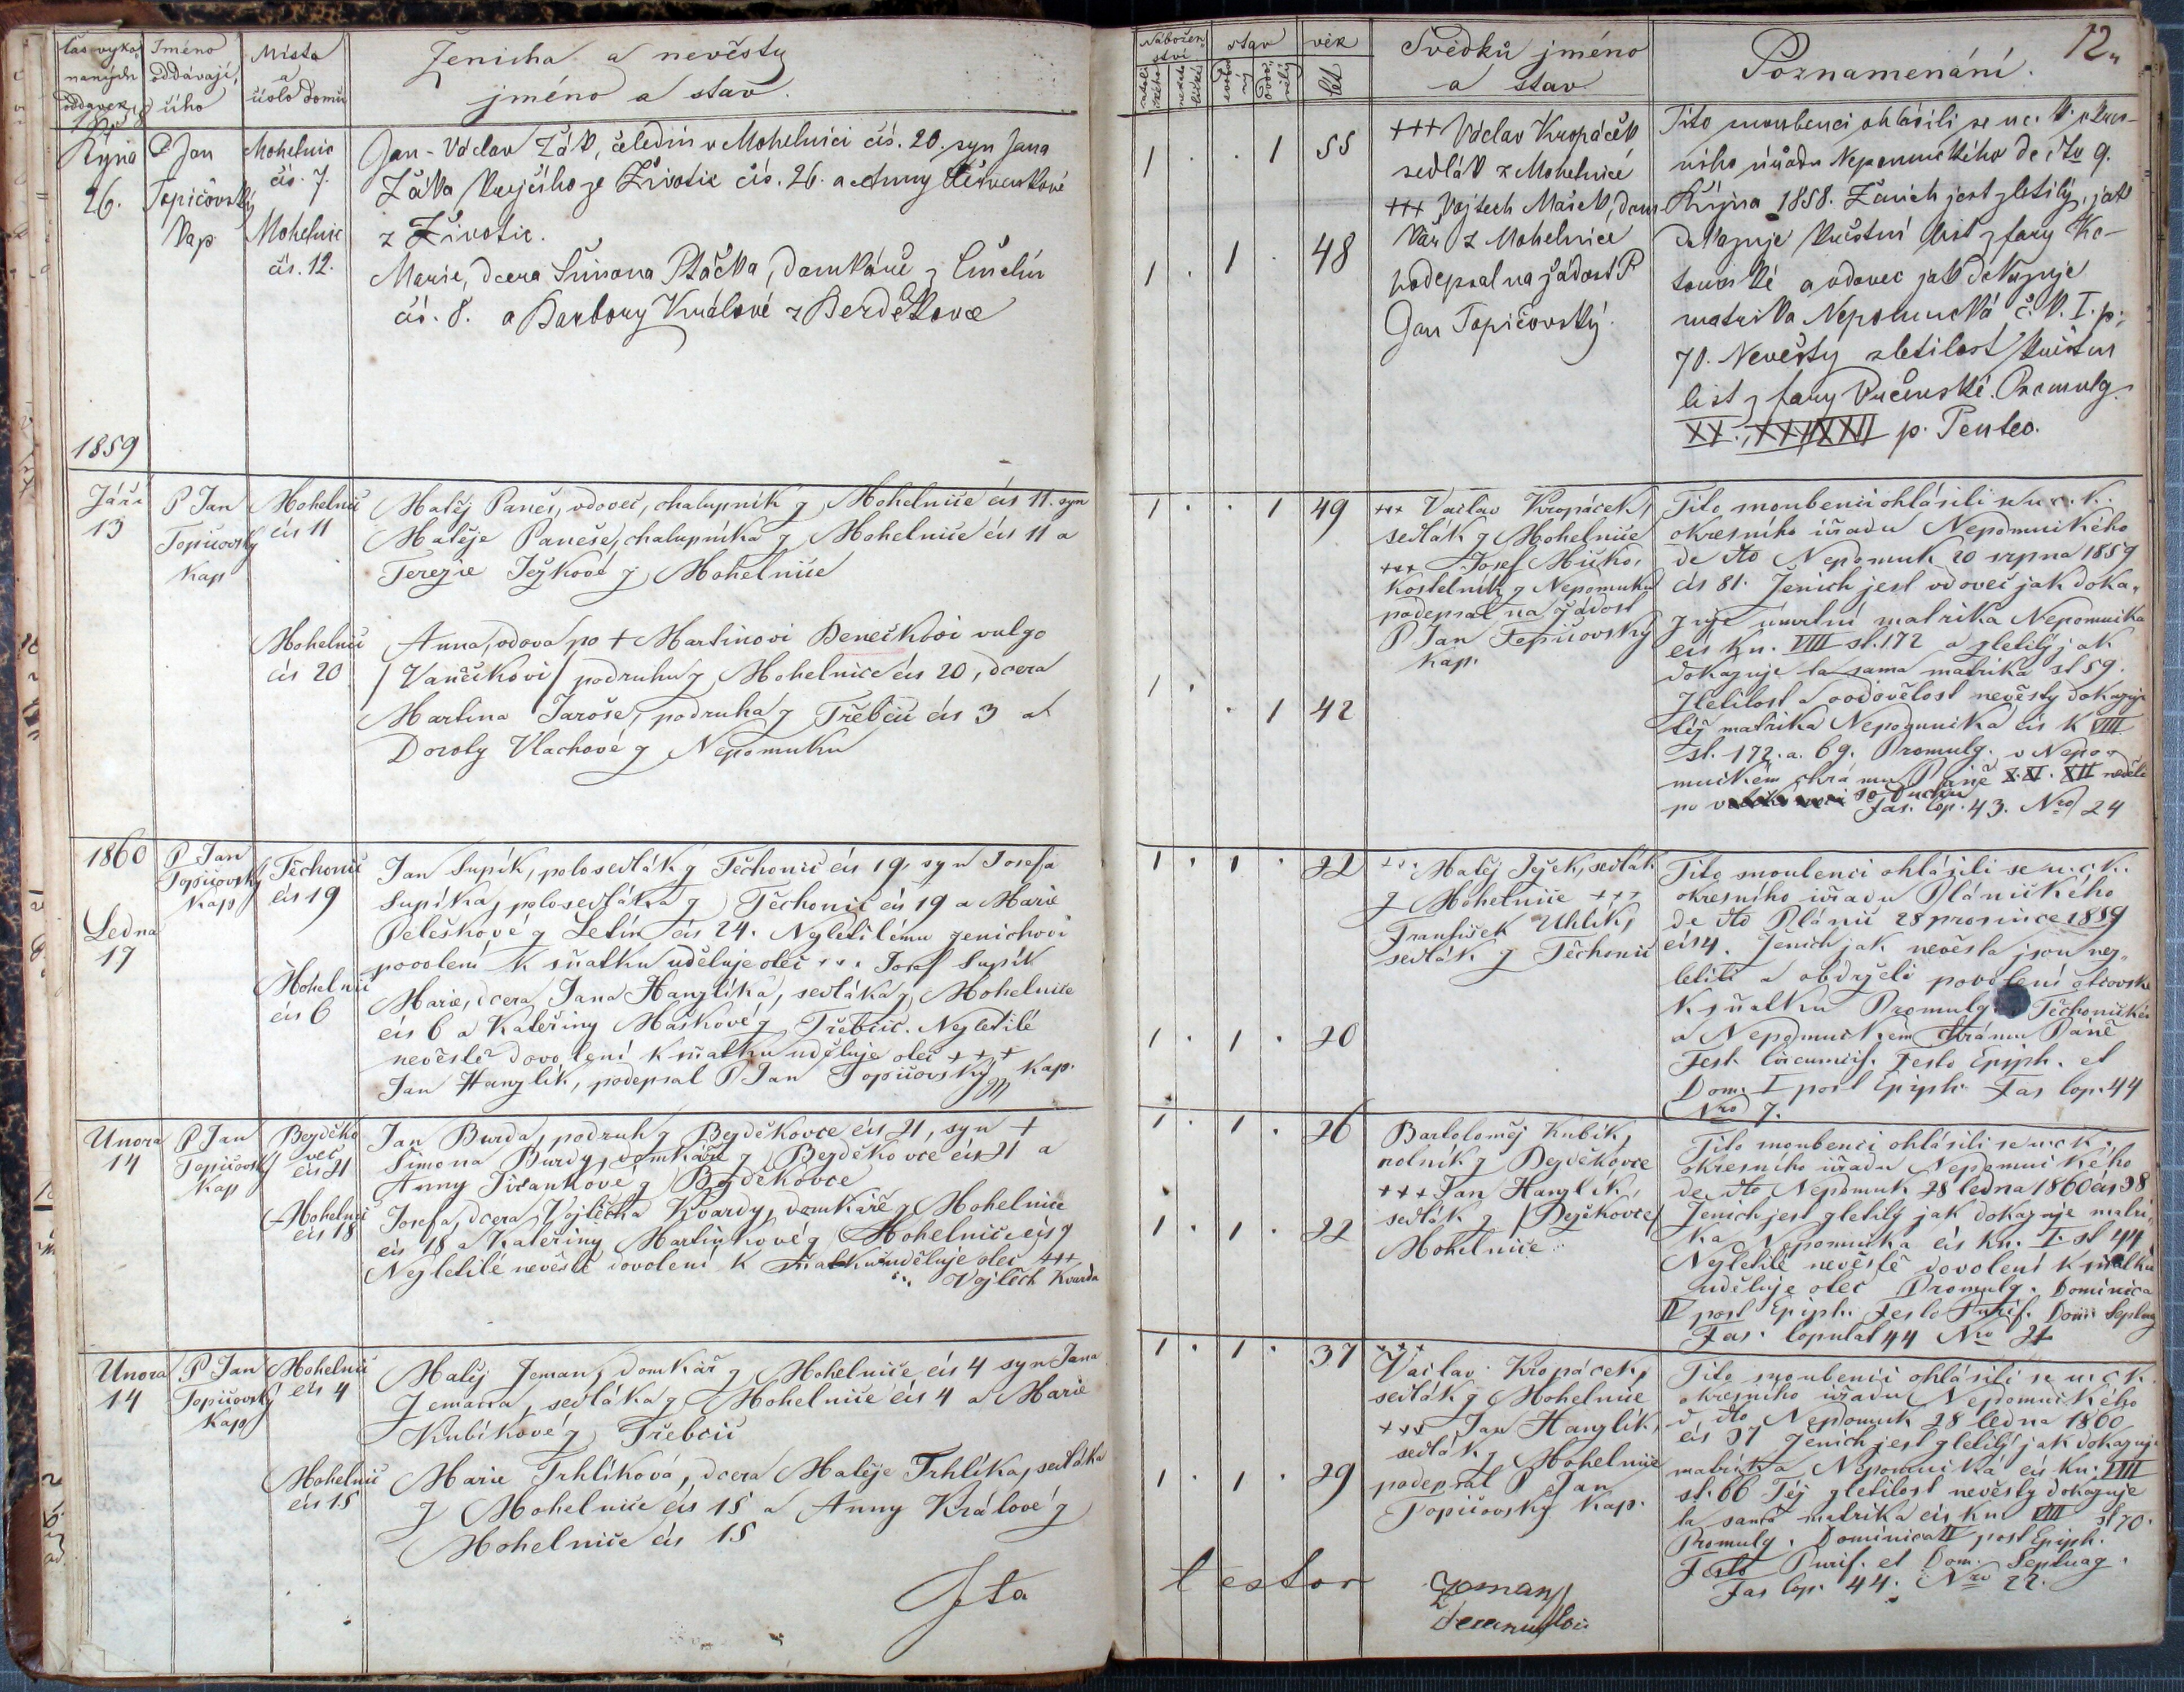 čas vyko-
naných
oddavek
1858
Jméno
oddávají-
cího
Místa
a
číslo domu
Ženicha a nevěsty
jméno a stav.
Října
26.
P Jan
Topičovský
kap
Mohelnic
čís. 7.
Mohelnic
čís. 12.
Jan-Václav Žák, čeledín v Mohelnici čís. 20. syn Jana
Žáka krejčího ze Životic čís. 26. a Anny
z Životic.
Marie, dcera Šimona Ptáčka, domkáře z
čís. 8. a Barbory Králové z
1859
Září
13
P Jan
Topičovský
kap
Mohelnic
čís 11
Matěj Paneš, vdovec, chalupník z Mohelnice čís 11. syn
Matěje Paneše, chalupníka z Mohelnice čís 11 a
Terezie Ježkové z Mohelnice
Mohelnic
čís 20
Anna, vdova po + Martinovi Benečkovi vulgo
/Vaněčkovi/ podruhu z Mohelnice čís 20, dcera
Martina Jaroše, podruha z Třebčic čís 3 a
Doroty Vlachové z Nepomuku
1860
Ledna
17
P Jan
Topičovský
kap
Těchonic
čís 19
Jan Supík, polosedlák z Těchonic čís 19, syn Josefa
Supíka, polosedláka z Těchonic čís 19 a Marie
Peleškové z Letin čís 24. Nezletilému ženichovi
povolení k sňatku uděluje otec +++ Josef Supík
Mohelnic
čís 6
Marie, dcera Jana Hanzlíka, sedláka z Mohelnice
čís 6 a Kateřiny Maškové z Třebčic. Nezletilé
nevěstě dovolení k sňatku uděluje otec +++
Jan Hanzlík, podepsal P Jan Topičovský kap.
Unora
14
P Jan
Topičovský
kap
Bezděko
vec
čís 21
Jan Burda, podruh z Bezděkovce čís 21, syn +
Šimona Burdy, domkáře z Bezděkovce čís 21 a
Anny z Bezděkovce
Mohelnic
čís 18
Josefa, dcera Vojtěcha Kvardy, domkáře z Mohelnice
čís 18 a Kateřiny Martínkové z Mohelnice čís 7
Nezletilé nevěstě dovolení k sňatku uděluje otec +++
Vojtěch Kvarda
Unora
14
P Jan
Topičovský
kap
Mohelnic
čís 4
Matěj Zeman, domkář z Mohelnice čís 4 syn Jana
Zemana, sedláka z Mohelnice čís 4 a Marie
Kubíkové z Třebčic
Mohelnic
čís 15
Marie Trhlíková, dcera Matěje Trhlíka, sedláka
z Mohelnice čís 15 a Anny Králové z
Mohelnice čís 15
Ita
Nábožen-
ství
stav
věk
let
Svědků jméno
a stav
Poznamenání.
12
1 . . 1 55
1 . 1 . 48
+++ Václav Kropáček
sedlák z Mohelnice
+++ Vojtech Mašek, dom
kář z Mohelnice
podepsal na žádost P
Jan Topičovský.
Tito snoubenci ohlásili se u c. k. okres-
ního úřadu Nepomuckého de dto 9.
Října 1858. Ženich jest zletilý, jak
dokazuje křestní list z fary Ko-
touňské a vdovec jak dokazuje
matrika Nepomucká č. k. I. p.
70. Nevěsty zletilost křestní
list z fary . Promulg.
XX., XXI XXII p. Pentec.
1 . . 1 49
1 . . 1 42
+++ Vaclav Kropáček,
sedlák z Mohelnice
+++ Josef
kostelník z Nepomuku
podepsal na žádost
P Jan Topičovský
kap.
Tito snoubenci ohlásili se u c. k.
okresního úřadu Nepomuckého
de dto Nepomuk 20 srpna 1859
čís 81. Ženich jest vdovec jak doka-
zuje úmrtní matrika Nepomucka
čís kn. VIII st. 172 a zletilý jak
dokazuje ta sama matrika st 59.
Zletilost a ovdovělost nevěsty dokazuje
též matrika Nepomucka čís k VIII
st. 172. a. 69. Promulg. v Nepo-
muckém chrámu Páně X. XI. XII neděli
po sv Duchu
Fas. Cop. 43. Nro 24
1 . 1 . 22
1 . 1 . 20
+++ Matěj Ježek, sedlák
z Mohelnice +++
František Uhlík,
sedlák z Těchonic
Tito snoubenci ohlásili se u. c. k.
okresního úřadu Plánického
de dto Plánic 28 prosince 1859
čís 4. Ženich jak nevěsta jsou nez-
letilí a obdrželi povolení otcovské
k sňatku Promulg. Těchonickém
a Nepomuckém chrámu Páně
Fest. Circumcis. Festo Epiph. et
Dom. I post Epiph. Fas Cop. 44
Nro 7.
1 . 1 . 26
1 . 1 . 22
Bartoloměj Kubík,
rolník z Bezděkovce
+++ Jan Hanzlík,
sedlák z /Bezděkovce/
Mohelnice
Tito snoubenci ohlásili se u c k.
okresního úřadu Nepomuckého
de dto Nepomuk 28 ledna 1860 čís 38
Ženich jest zletilý jak dokazuje matri-
ka Nepomucka čís kn. I. st 44
Nezletilé nevěstě dovolení k sňatku
uděluje otec Promulg. Dominica
IV post Epiph. Festo Purif. Dom Septuag
Fas. Copulat 44 Nro 21
1 . 1 . 37
1 . 1 . 29
+++
Vaclav Kropáček,
sedlák z Mohelnice
+++ Jan Hanzlík,
sedlák z Mohelnice
podepsal P Jan
Topičovský kap.
Tito snoubenci ohlásili se u c k
okresního úřadu Nepomuckého
d. dto Nepomuk 28 ledna 1860
čís 37 Ženich jest zletilý jak dokazuje
matrika Nepomucká čís kn. VIII
st. 66 Též zletilost nevěsty dokazuje
ta sama matrika čís kn VIII st 70.
Promulg. Dominica IV post Epiph.
Festo Purif. et Dom. Septuag.
Fas Cop. 44. Nro 22.
testor
Zeman